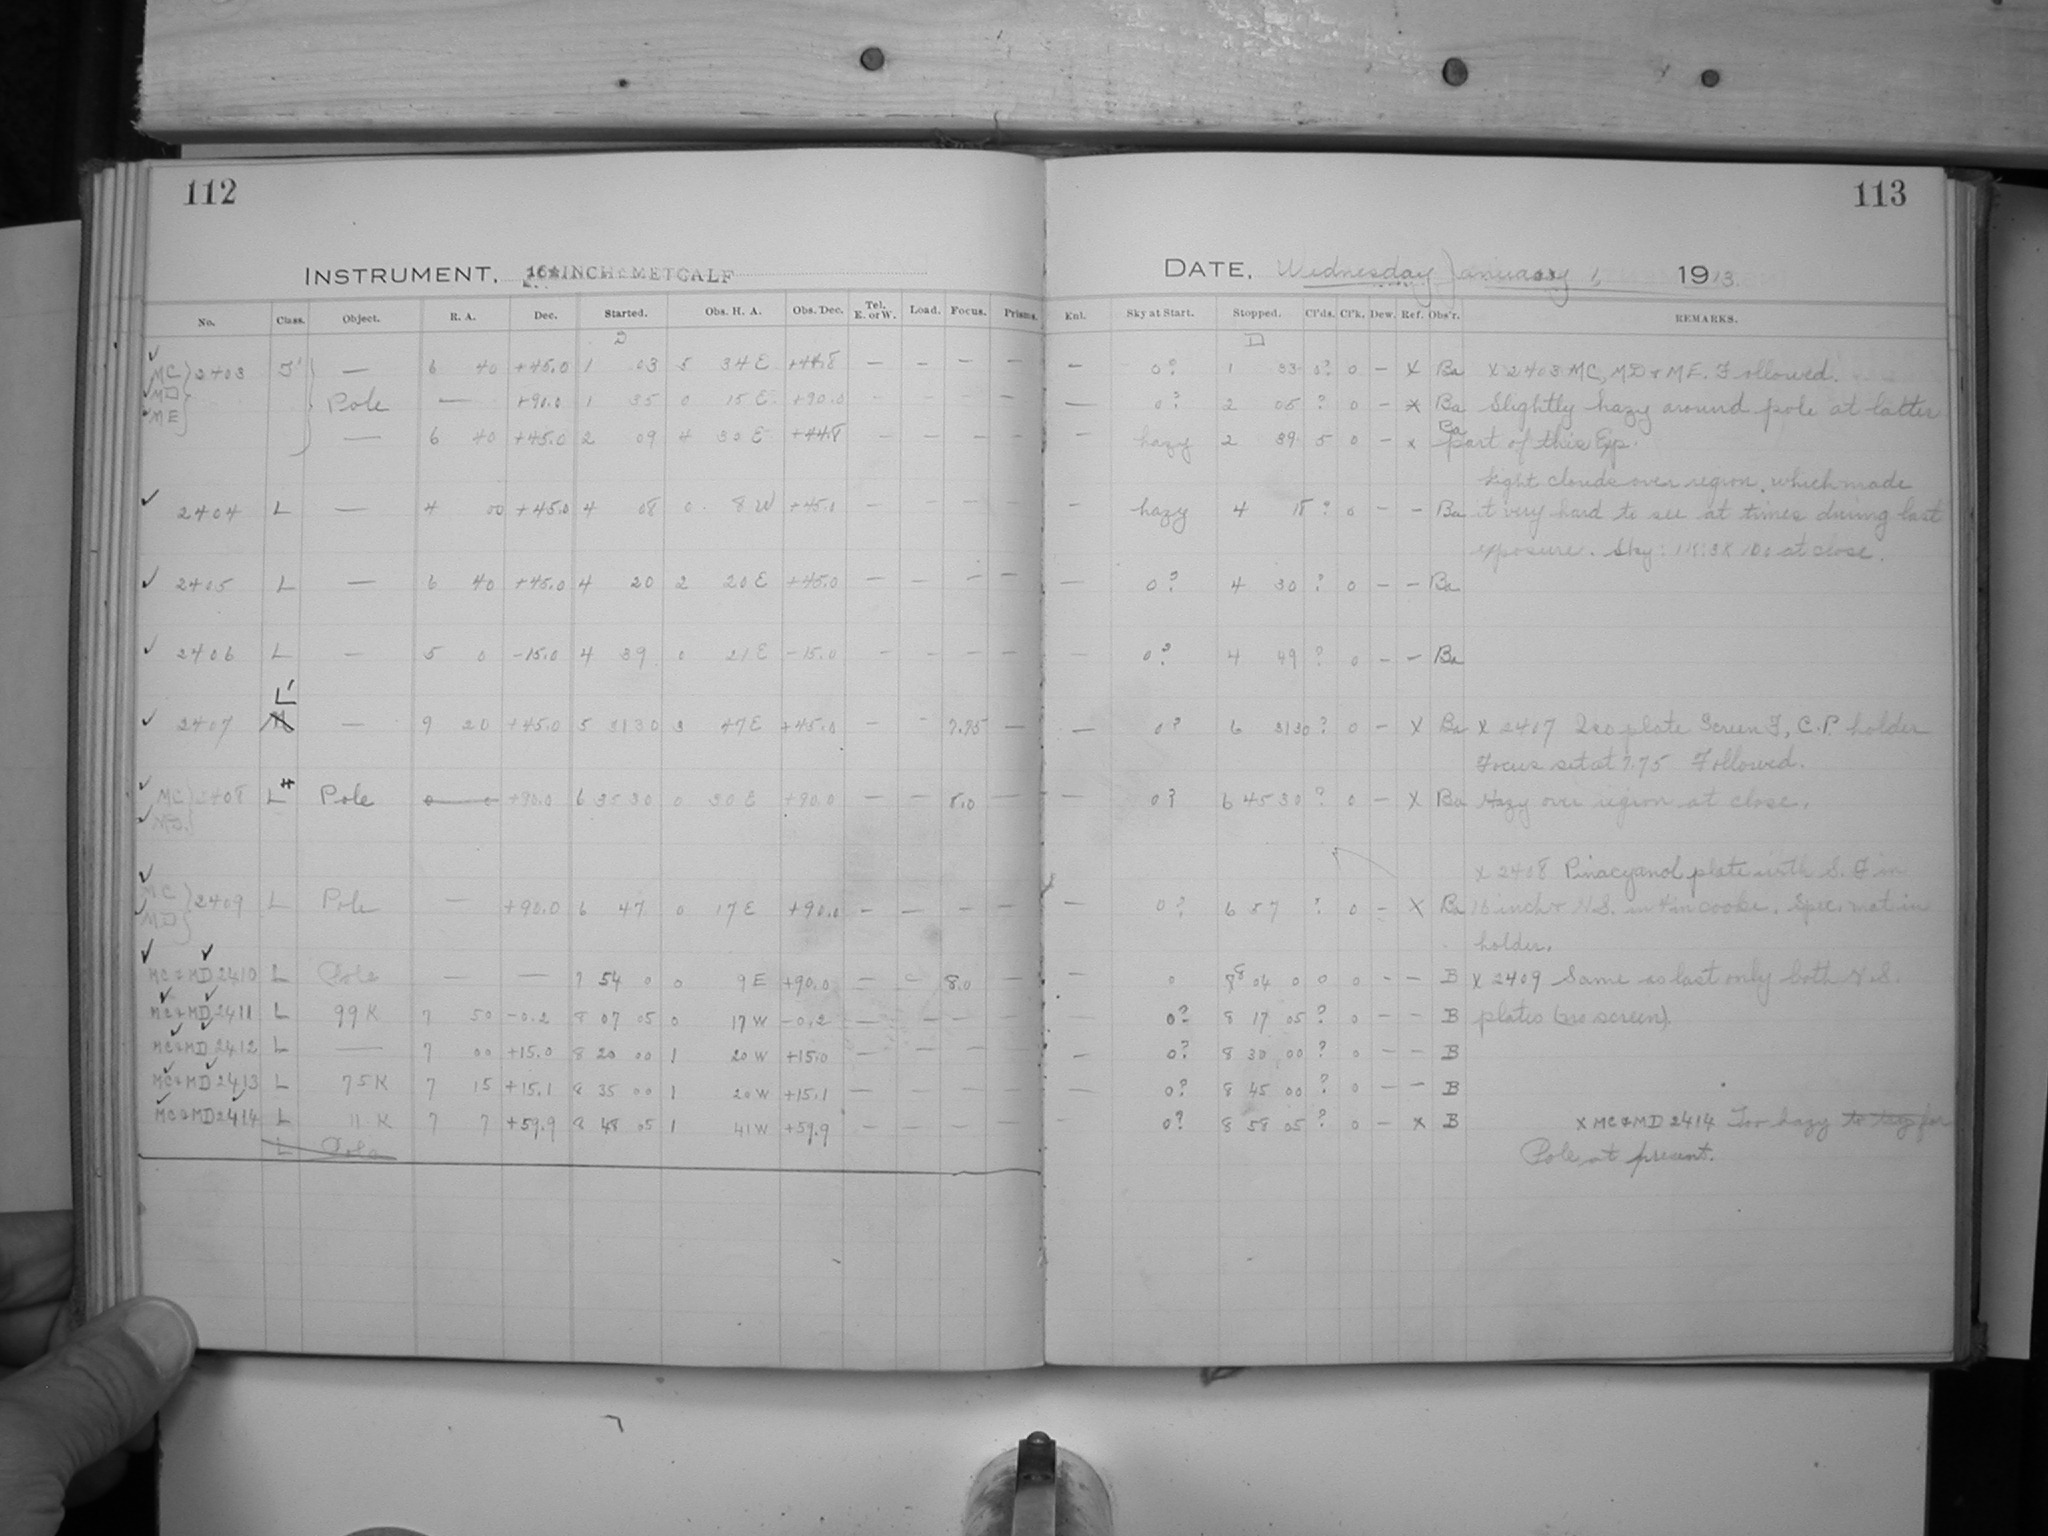 112
113
INSTRUMENT, 16 INCH METCALF
DATE, Wednesday January 1, 1913.
No. Class. Object. R. A. Dec. Started. Obs. H. A. Obs. Dec. Tel. E. or W. Load. Focus. Prisms. Enl. Sky at Start. Stopped. Cl'ds. Cl'k. Dew. Ref. Obs'r. REMARKS.
MC 2403 — 6 40 +45.0 1 03 5 34 E +44.8 — — — — — 0? 1 33 0? 0 — X Ba X 2403 MC, MD & ME. Followed.
MD Pole — +90.0 1 35 0 15 E +90.0 — — — — — 0? 2 05 ? 0 — X Ba Slightly hazy around pole at latter
ME — 6 40 +45.0 2 09 4 30 E +44.8 — — — — — hazy 2 39 5 0 — x Ba part of this Exp.
Light clouds over region, which made
2404 L — 4 00 +45.0 4 08 0 8 W +45.0 — — — — — hazy 4 18 ? 0 — — Ba it very hard to see at times during last
exposure. Sky: at close.
2405 L — 6 40 +45.0 4 20 2 20 E +45.0 — — — — — 0? 4 30 ? 0 — — Ba
2406 L — 5 0 -15.0 4 39 0 21 E -15.0 — — — — — 0? 4 49 ? 0 — — Ba
L'
2407 — 9 20 +45.0 5 31 30 3 47 E +45.0 — — 7.75 — — 0? 6 31 30 ? 0 — X Ba X 2407 Iso plate Screen F, C.P. holder
Focus set at 7.75 Followed.
MC 2408 L Pole 0 0 +90.0 6 35 30 0 30 E +90.0 — — 8.0 — — 0? 6 45 30 ? 0 — X Ba Hazy over region at close.
MD
X 2408 Pinacyanol plate with S. F in
MC 2409 L Pole — +90.0 6 47 0 17 E +90.0 — — — — — 0? 6 57 ? 0 — X Ba 16 inch & N.S. in 4 in Cooke. Spec. mat in
MD holder.
MC & MD 2410 L Pole — — 7 54 0 0 9 E +90.0 — — 8.0 — — 0 8 04 0 0 0 — — B X 2409 Same as last only both N.S.
MC & MD 2411 L 99 K 7 50 -0.2 8 07 05 0 17 W -0.2 — — — — — 0? 8 17 05 ? 0 — — B plates (no screen)
MC & MD 2412 L — 7 00 +15.0 8 20 00 1 20 W +15.0 — — — — — 0? 8 30 00 ? 0 — — B
MC & MD 2413 L 75 K 7 15 +15.1 8 35 00 1 20 W +15.1 — — — — — 0? 8 45 00 ? 0 — — B
MC & MD 2414 L 11 K 7 7 +59.9 8 48 05 1 41 W +59.9 — — — — — 0? 8 58 05 ? 0 — X B X MC & MD 2414 Too hazy for
L Pole Pole at present.